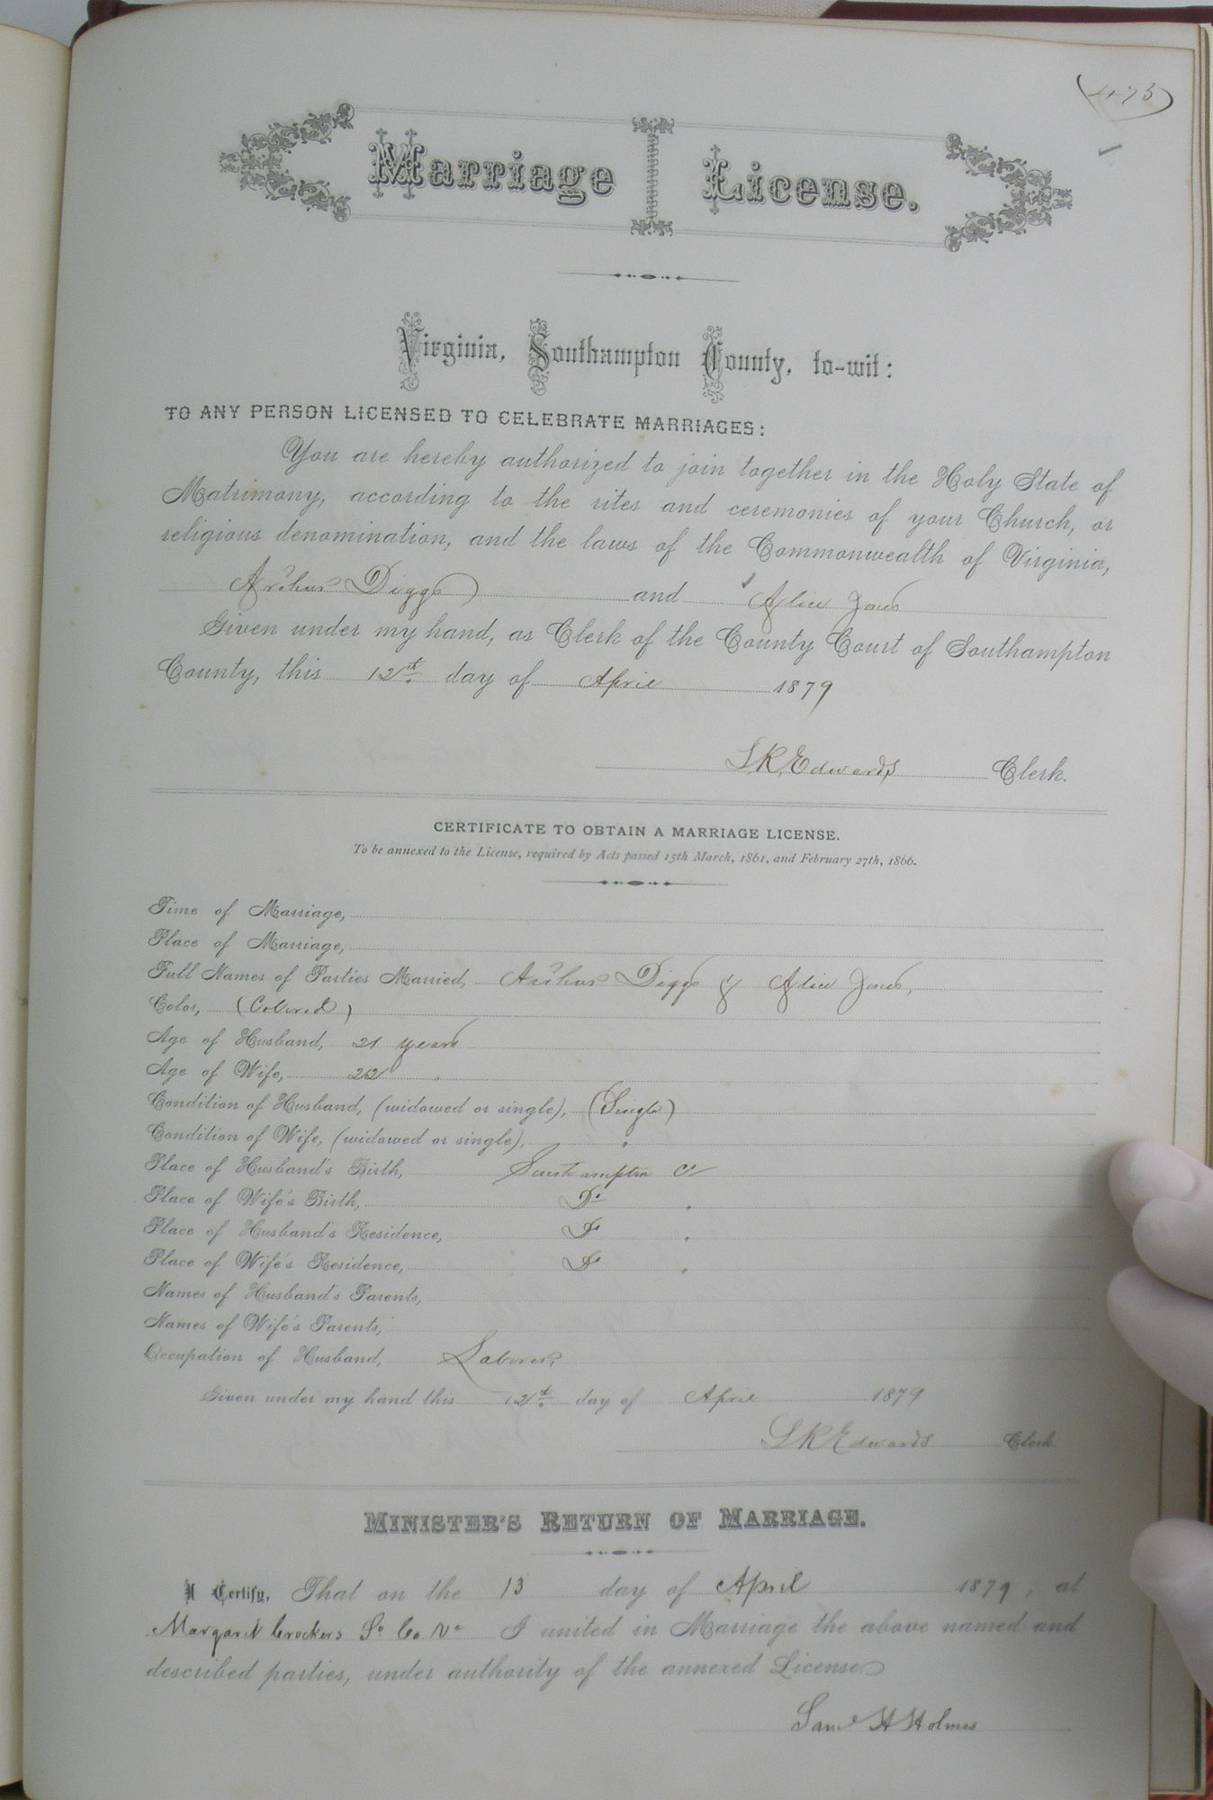 (473)
Marriage License.
Virginia, Southampton County, to-wit:
TO ANY PERSON LICENSED TO CELEBRATE MARRIAGES:
You are hereby authorized to join together in the Holy State of
Matrimony, according to the rites and ceremonies of your Church, or
religious denomination, and the laws of the Commonwealth of Virginia,
Arthur Diggs and Alice Jones
Given under my hand, as Clerk of the County Court of Southampton
County, this 12th day of April 1879
L R Edwards Clerk.
CERTIFICATE TO OBTAIN A MARRIAGE LICENSE.
To be annexed to the License, required by Acts passed 15th March, 1861, and February 27th, 1866.
Time of Marriage,
Place of Marriage,
Full Names of Parties Married, Arthur Diggs & Alice Jones,
Color, (Colored)
Age of Husband, 21 years
Age of Wife, 22 "
Condition of Husband, (widowed or single), (Single)
Condition of Wife, (widowed or single), "
Place of Husband's Birth, Southampton Co
Place of Wife's Birth, Do "
Place of Husband's Residence, Do "
Place of Wife's Residence, Do "
Names of Husband's Parents,
Names of Wife's Parents,
Occupation of Husband, Laborer,
Given under my hand this 12th day of April 1879
L R Edwards Clerk
MINISTER'S RETURN OF MARRIAGE.
I Certify, That on the 13 day of April 1879, at
Margaret Crockers So Co Va I united in Marriage the above named and
described parties, under authority of the annexed License
Saml H Holmes